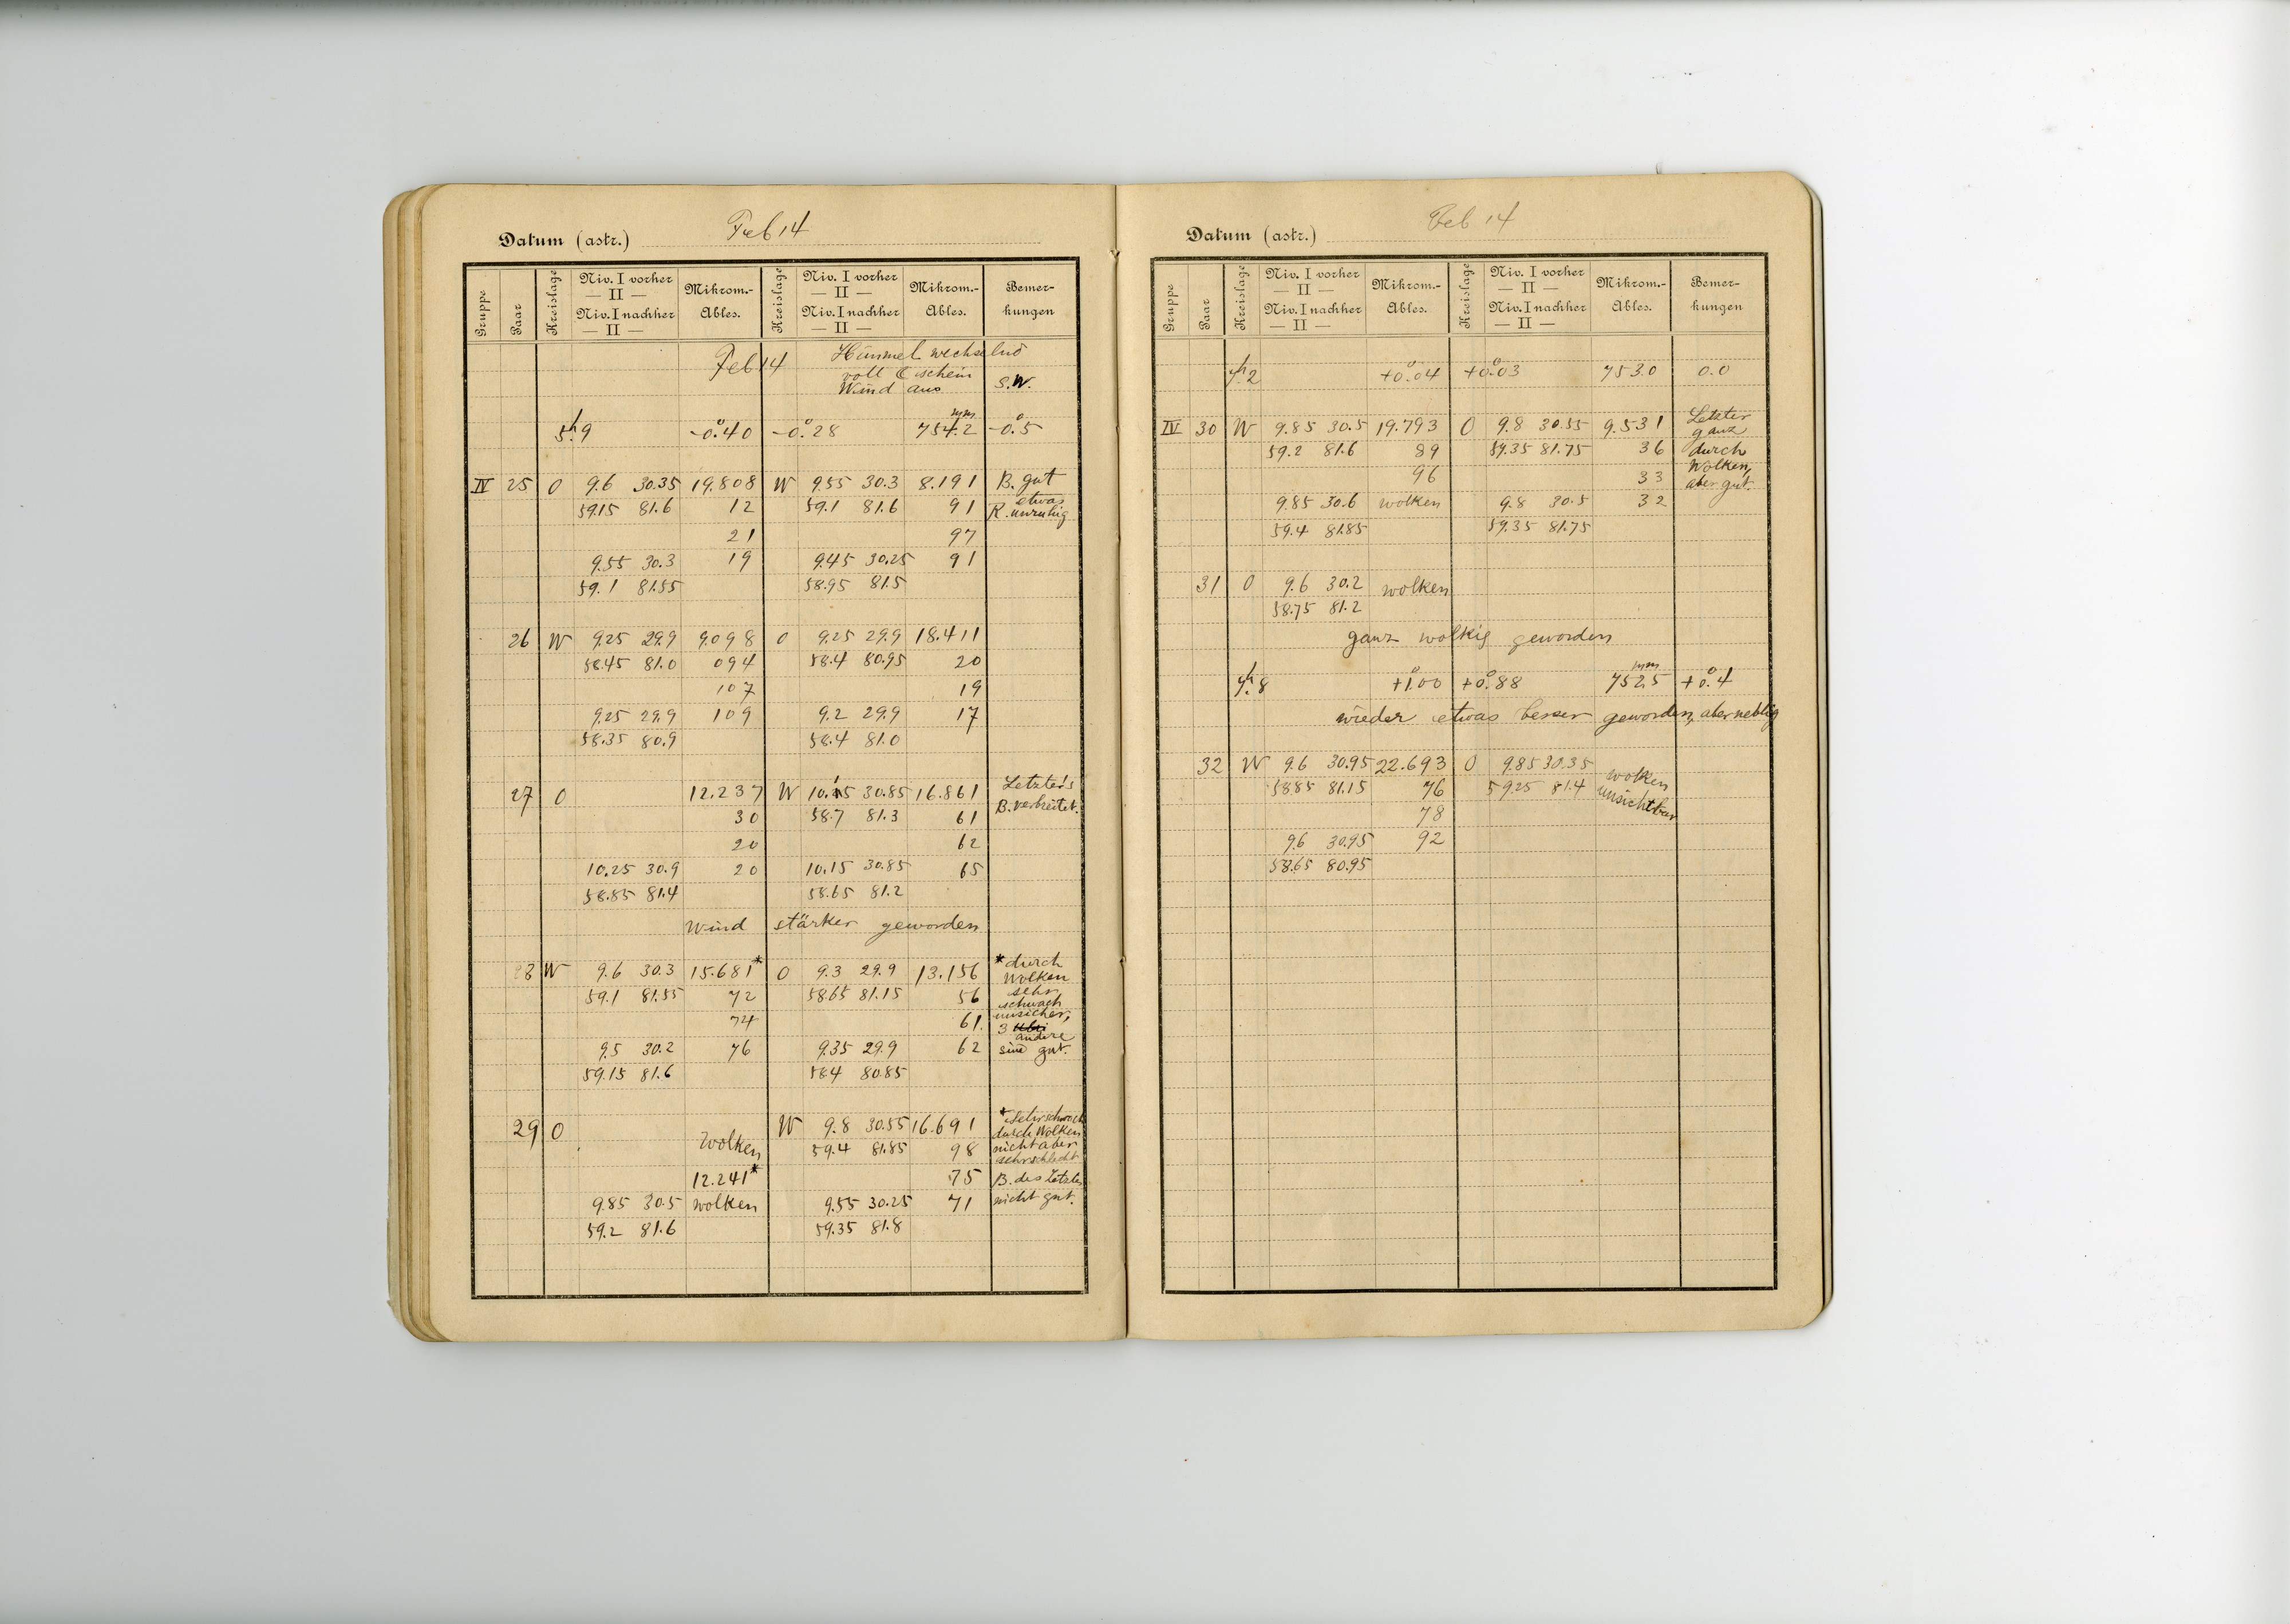 Datum (astr.) Feb 14
Gruppe Paar Kreislage Niv. I vorher Mikrom.- Kreislage Niv. I vorher Mikrom.- Bemer-
— II — — II —
Niv. I nachher Ables. Niv. I nachher Ables. kungen
— II — — II —
Feb 14 Himmel wechselnd
voll ☾ schein
Wind aus S.W.
5h.9 -0°.40 -0°.28 754.2 mm -0°.5
IV 25 O 9.6 30.35 19.808 W 9.55 30.3 8.191 B. gut
59.15 81.6 12 59.1 81.6 91 R. etwas unruhig
21 97
9.55 30.3 19 9.45 30.25 91
59.1 81.55 58.95 81.5
26 W 9.25 29.9 9.098 O 9.25 29.9 18.411
58.45 81.0 094 58.4 80.95 20
107 19
9.25 29.9 109 9.2 29.9 17
58.35 80.9 58.4 81.0
27 O 12.237 W 10.15 30.85 16.861 Letzter's
30 58.7 81.3 61 B. verbreitet.
20 62
10.25 30.9 20 10.15 30.85 65
58.85 81.4 58.65 81.2
Wind stärker geworden
28 W 9.6 30.3 15.681* O 9.3 29.9 13.156 *durch
Wolken
59.1 81.55 72 58.65 81.15 56 sehr
schwach
74 61. unsicher,
3 andere
9.5 30.2 76 9.35 29.9 62 sind gut.
59.15 81.6 58.4 80.85
29 O Wolken W 9.8 30.55 16.691 *Sehr schwach
durch Wolken
59.4 81.85 98 nicht aber
sehr schlecht
12.241* 75 B. des Letzten
9.85 30.5 wolken 9.55 30.25 71 nicht gut.
59.2 81.6 59.35 81.8
Datum (astr.) Feb 14
Gruppe Paar Kreislage Niv. I vorher Mikrom.- Kreislage Niv. I vorher Mikrom.- Bemer-
— II — — II —
Niv. I nachher Ables. Niv. I nachher Ables. kungen
— II — — II —
7h.2 +0°.04 +0°.03 753.0 0.0
IV 30 W 9.85 30.5 19.793 O 9.8 30.55 9.531 Letzter
ganz
59.2 81.6 89 59.35 81.75 36 durch
96 33 Wolken,
aber gut.
9.85 30.6 wolken 9.8 30.5 32
59.4 81.85 59.35 81.75
31 O 9.6 30.2 wolken
58.75 81.2
ganz wolkig geworden
7h.8 +1°.00 +0°.88 752.5 mm +0°.4
wieder etwas besser geworden, aber neblig
32 W 9.6 30.95 22.693 O 9.85 30.35 wolken
58.85 81.15 76 59.25 81.4 unsichtbar
78
9.6 30.95 92
58.65 80.95